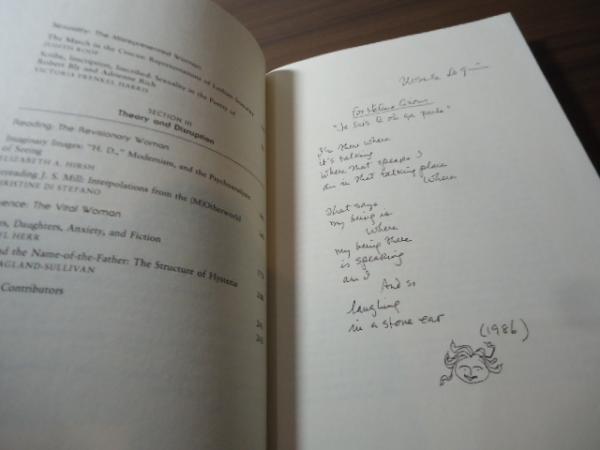 Sexuality: The Misrepresented Woman
The March in the Cracow: Representations of Lesbian Sexuality
JUDITH ROOF
Scribe, Inscription, Inscribed: Sexuality in the Poetry of
Robert Bly and Adrienne Rich
VICTORIA FRENKEL HARRIS
SECTION III
Theory and Disruption
Reading: The Revisionary Woman
Imaginary Images: "H. D.," Modernism, and the Psychoanalysis
of Seeing
ELIZABETH A. HIRSH
erreading J. S. Mill: Interpolations from the (M)Otherworld
HRISTINE DI STEFANO
ence: The Vital Woman
es, Daughters, Anxiety, and Fiction
EL HERR
nd the Name-of-the-Father: The Structure of Hysteria
AGLAND-SULLIVAN
Contributors
Ursula Le Guin
For Hélène Cixous
"Je suis là où ça parle"
I'm there where
it's talking
Where that speaks I
am in that talking place
Where
That says
my being is
Where
my being there
is speaking
am I
And so
laughing
in a stone ear
(1986)